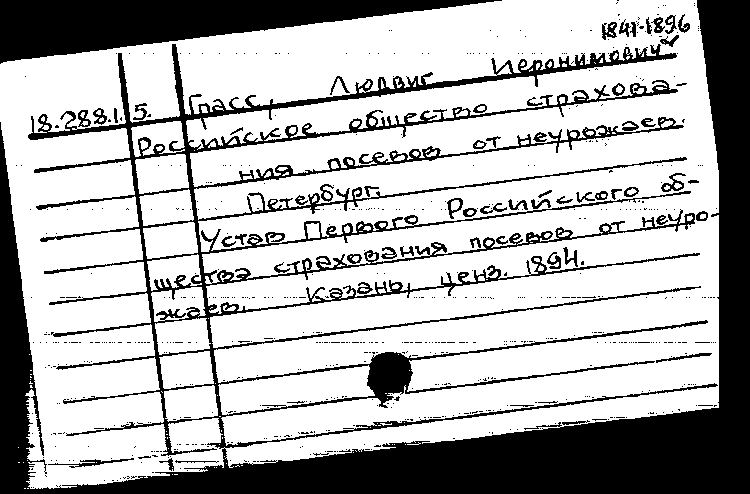 1841-1896
18.288.1.5. Грасс, Людвиг Иеронимович
Российское общество страхова-
ния посевов от неурожаев.
Петербург.
Устав Первого Российского об-
щества страхования посевов от неуро-
жаев. Казань, ценз. 1894.